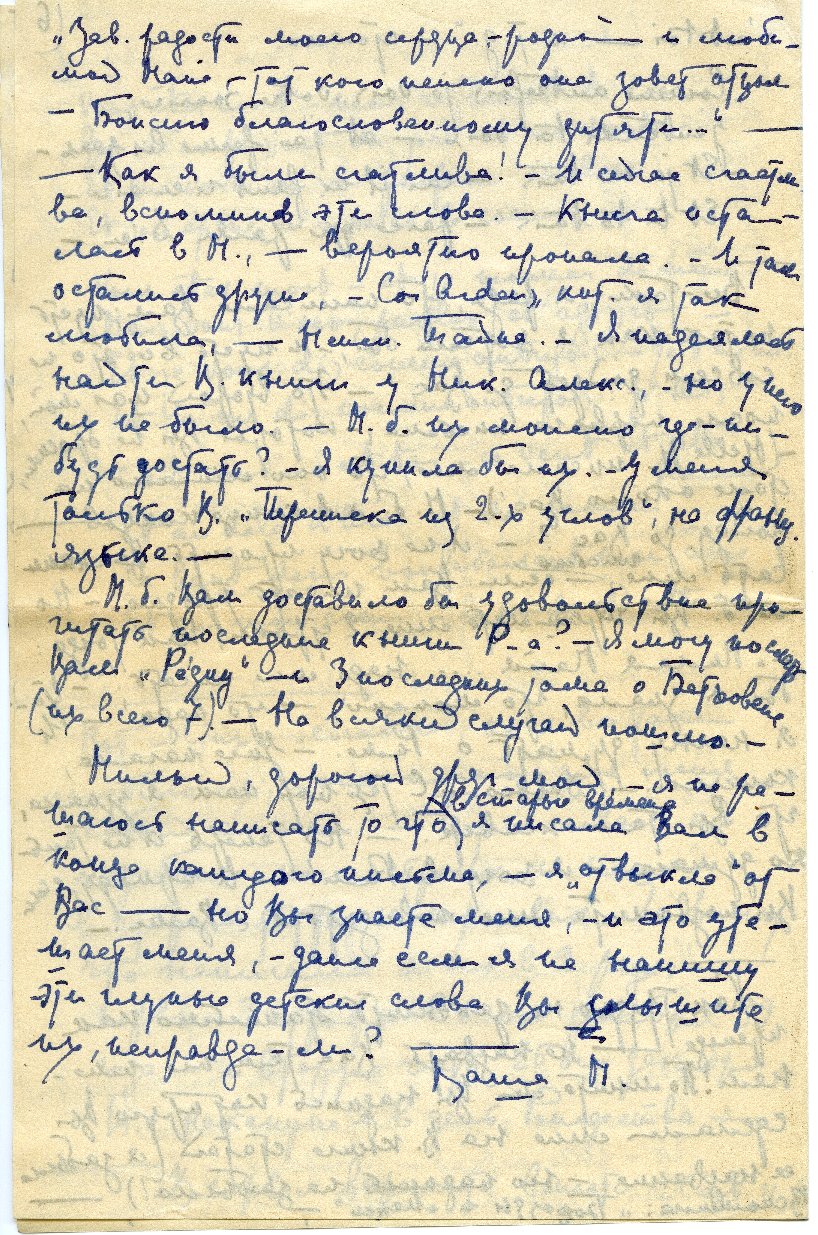 „Зав. радости моего сердца, – родной и люби-
мой Майе, – тот кого нежно она зовет отцом
– Божьего благословенному дитяти..." —
— Как я была счастлива! – И сейчас счастли-
ва, вспомнив эти слова. – Книга оста-
лась в М., — вероятно пропала. – И там
остались другие, – Cor Ardens, кот. я так
любила, — Нежн. Тайна. – Я надеялась
найти В. книги у Ник. Алекс., – но у него
их не было. – М. б. их можно где-ни-
будь достать? – Я купила бы их. У меня
только В. „Переписка из 2-х углов", на франц.
языке. —
М. б. Вам доставило бы удовольствие про-
читать последние книги Р–а? – Я могу послать
Вам „Péguy" – и 3 последних тома о Бетховене
(их всего 7). – На всякий случай пошлю. –
Милый, дорогой друг мой – я не ре-
шаюсь написать то что (в старые времена) я писала Вам в
конце каждого письма, – я „отвыкла" от
Вас — но Вы знаете меня, – и это уте-
шает меня, – даже если я не напишу
эти глупые детские слова Вы услышите
их, неправда-ли? —
Ваша М.